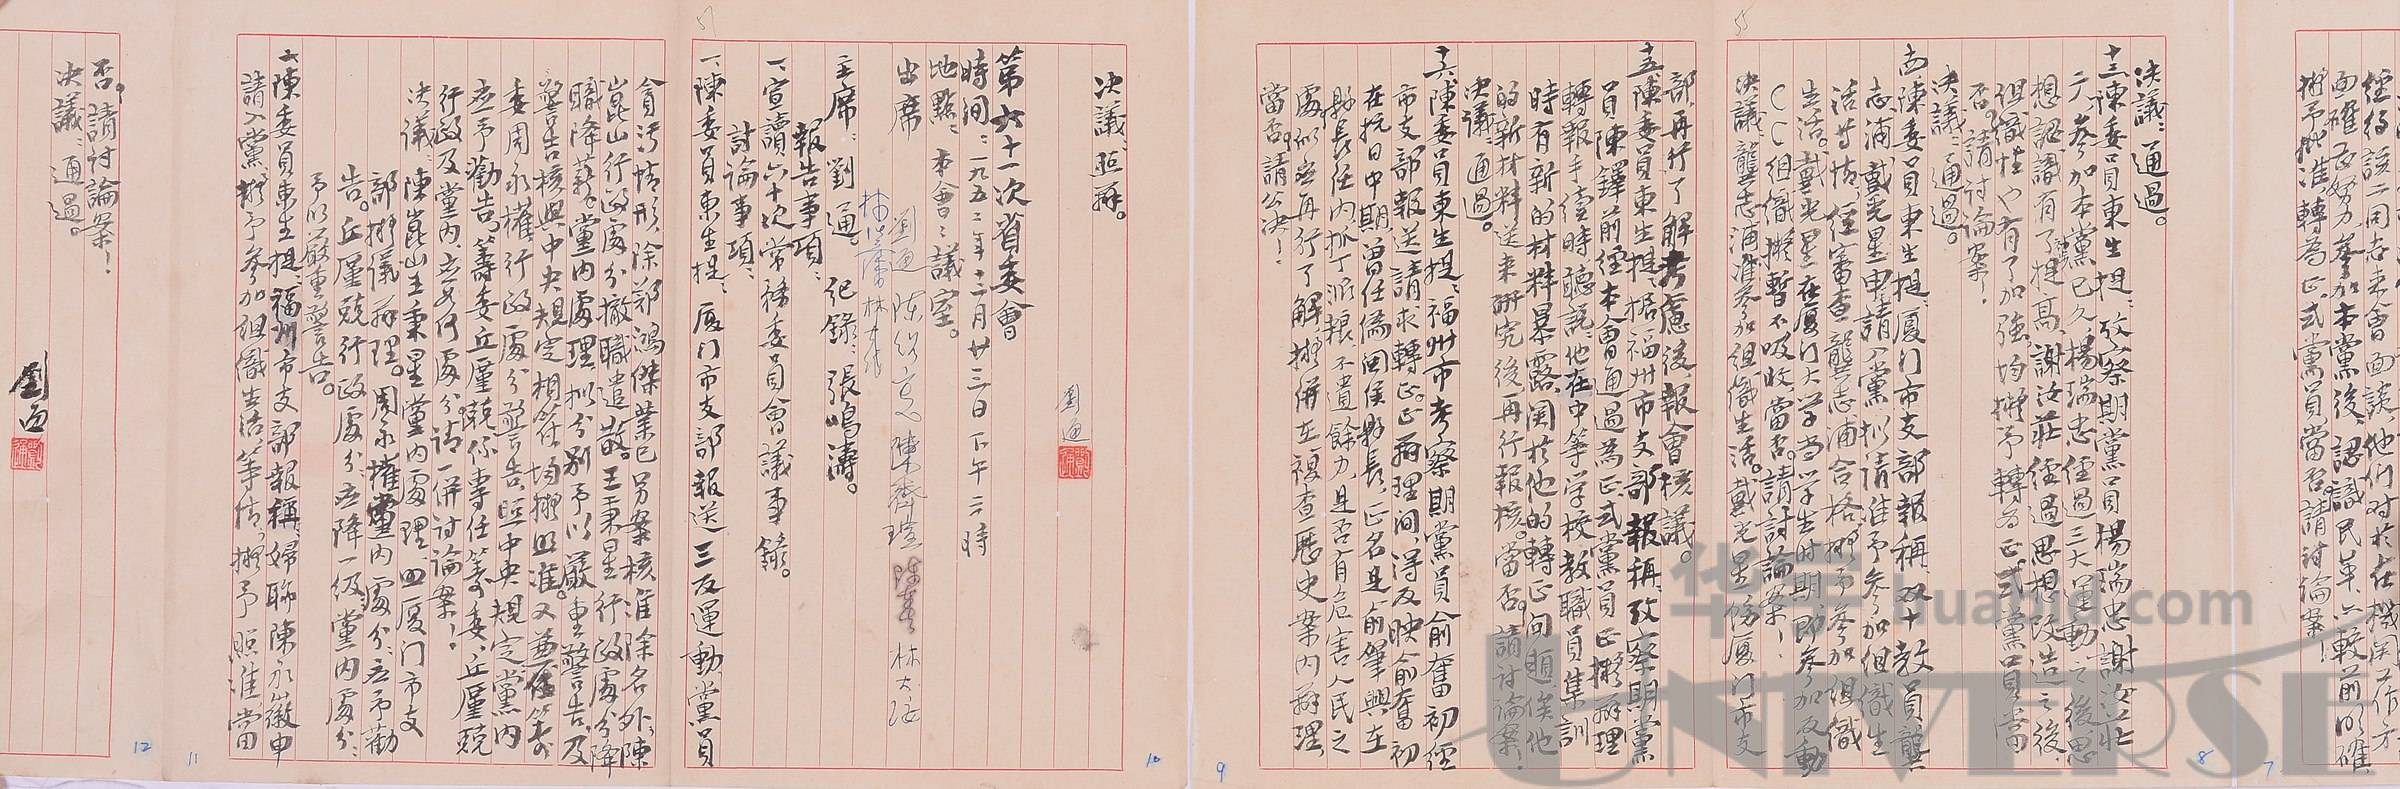 經得該二同志來會面談他們对於在機関工作方
面確曾努力參加本黨後、認識民革、亦較前明確
擬予批准轉為正式黨員當否請討論案！
決議：通過。
十三、陳委員東生提：攷察期黨員楊瑞忠謝汝莊
二人參加本黨已久、楊瑞忠經過三大運動之後思
想認識有了提高、謝汝莊經過思想改造之後、
組織性也有了加強均擬予轉為正式黨員當
否。請討論案！
決議：通過。
十四、陳委員東生提：厦门市支部報稱双十教員龔
志浦戴光星申請入黨擬請准予參加組織生
活等情、經審查龔志浦合格擬予參加組織
生活。戴光星在厦门大学当学生时期即參加反動
CC組織擬暫不吸收當否。請討論案！
決議：龔志浦准參加組織生活。戴光星飭厦门市支
部、再行了解考慮後報會核議。
十五、陳委員東生提：据福州市支部報稱、攷察期黨
員陳鐸前經本會通過為正式黨員正擬辦理
轉報手續時聽說：他在中等学校教職員集訓
時有新的材料暴露、関於他的轉正问題俟他
的新材料送来研究後再行報核。當否。請討論案！
決議：通過。
十六、陳委員東生提：福州市考察期黨員俞奮初經
市支部報送請求轉正。正辦理间、得反映俞奮初
在抗日中期曾任偽閩侯縣長、正名是俞肇興在
縣長任內抓丁派粮不遺餘力、是否有危害人民之
處似应再行了解擬併在複查歷史案內辦理
當否請公決！
決議：照辦。
劉通
第六十一次省委會
時间：一九五二年十二月廿三日下午二時
地點：本會二議室。
出席 劉通 林大琼
主席：劉通。 紀錄：張鳴濤。
報告事項：
一、宣讀六十次常務委員會議事錄。
討論事項：
一、陳委員東生提：厦门市支部報送三反運動黨員
貪污情形除鄭鴻傑業已另案核准除名外、陳
崑山行政處分撤職遣散。王秉星行政處分降
職降薪黨內處理擬分別予以嚴重警告及
警告核與中央規定相符均擬照准。又兼任籌
委周永權行政處分警告、照中央規定黨內
应予勸告、籌委丘厪兢係專任籌委、丘厪兢
行政及黨內应如何處分請一併討論案！
決議：陳崑山王秉星黨內處理、如厦门市支
部擬議辦理。周永權黨內處分：应予勸
告。丘厪兢行政處分：应降一級、黨內處分：
予以嚴重警告。
二、陳委員東生提、福州市支部報稱婦聯陳永薇申
請入黨、擬予參加組織生活、等情。擬予照准、當
否。請討論案！
決議：通過。
劉通
57
55
12
11
10
9
8
7
华宇 huabid.com
UNIVERSE